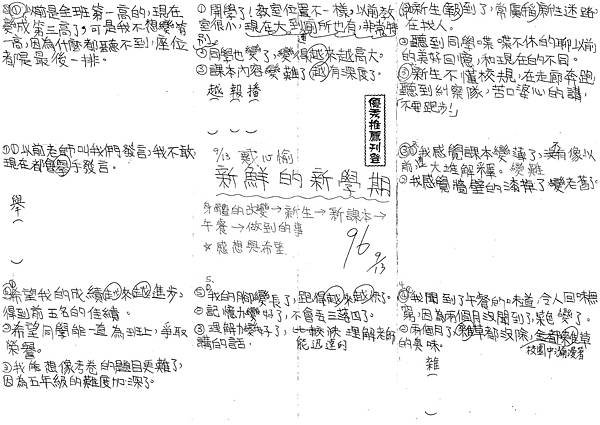 ①以前是全班第一高的,現在
變成第三高了。可是我不想變第
一高,因為什麼都聽不到!座位
都是最後一排。
①開學了!教室位置不一樣,以前教
室很小,現在大到廁所也有,非常特
別。
②同學也變了,變得越來越高大。
③課本內容變難了越有深度了。
越 報 播
①新生報到了,常廣播新生迷路
在找人。
②聽到同學喋喋不休的聊以前
的美好回憶,和現在的不同。
③新生不懂校規,在走廊奔跑
聽到糾察隊,苦口婆心的講,
「不要跑步!」
優秀推薦刊登
①以前老師叫我們發言,我不敢
現在都會舉手發言。
舉
9/13 鄭心愉
新鮮的新學期
身體的改變→新生→新課本→
午餐→做到的事
★感想與希望
96 9/13
①我感覺課本變薄了,沒有像以
前還大堆解釋。變難
②我感覺牆壁的漆掉了變老舊了
①希望我的成績越來越進步,
得到前五名的佳績。
②希望同學能一直為班上,爭取
榮譽。
③我能想像考卷的題目更難了,
因為五年級的難度加深了。
①我的腳變長了,跑得越來越快了。
②記憶力變好了,不會丟三落四了。
③理解力變好了,比較快理解老師
講的話。 能迅速的
①我聞到了午餐的味道,令人回味無
窮,因為兩個月沒聞到了,菜色變了。
②兩個月了雜草都沒除,全部都是草
的臭味。 校園中瀰漫著
雜